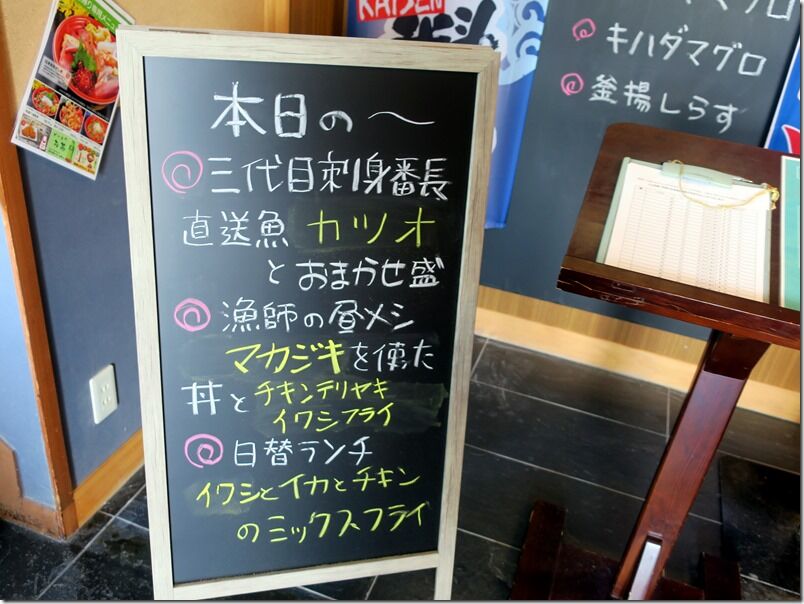 本日の〜
三代目刺身番長
直送魚 カツオ
とおまかせ盛
漁師の昼メシ
マカジキを使た
丼とチキンテリヤキ
イワシフライ
日替ランチ
イワシとイカとチキン
のミックスフライ
KAISEN
マグロ
キハダマグロ
釜揚しらす